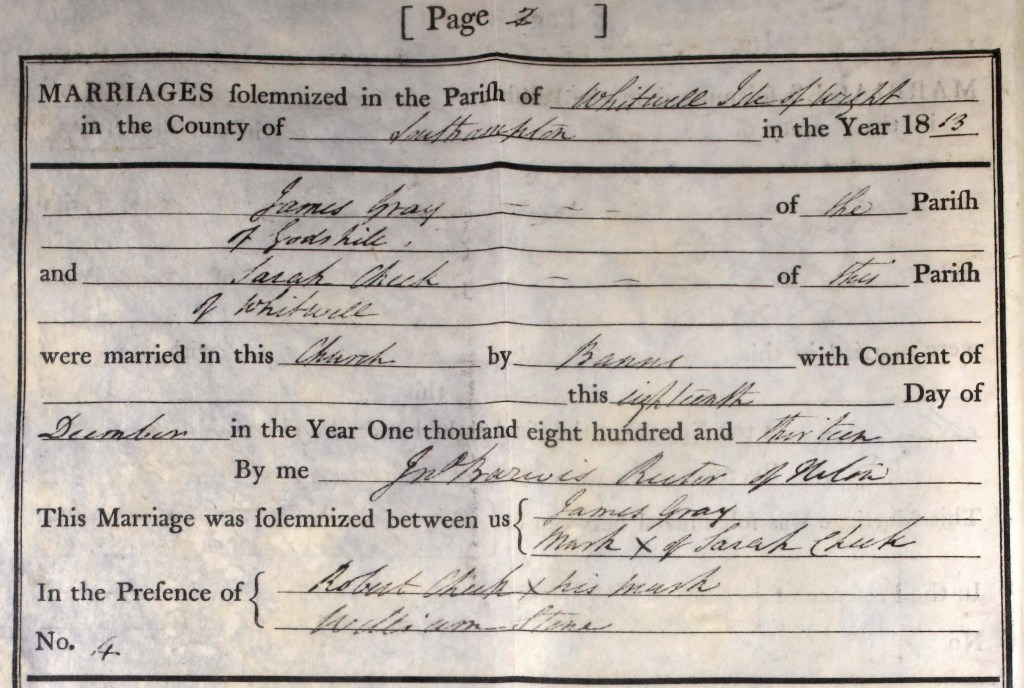 [ Page 2 ]
MARRIAGES ſolemnized in the Pariſh of Whitwell Isle of Wight
in the County of Southampton in the Year 1813
James Gray of the Pariſh
of Godshill
and Sarah Cheek of this Pariſh
of Whitwell
were married in this Church by Banns with Conſent of
this eighteenth Day of
December in the Year One thouſand eight hundred and thirteen
By me Jno Barwis Rector of Niton
This Marriage was ſolemnized between us { James Gray
Mark X of Sarah Cheek
In the Preſence of { Robert Cheek X his mark
William Stone
No. 4